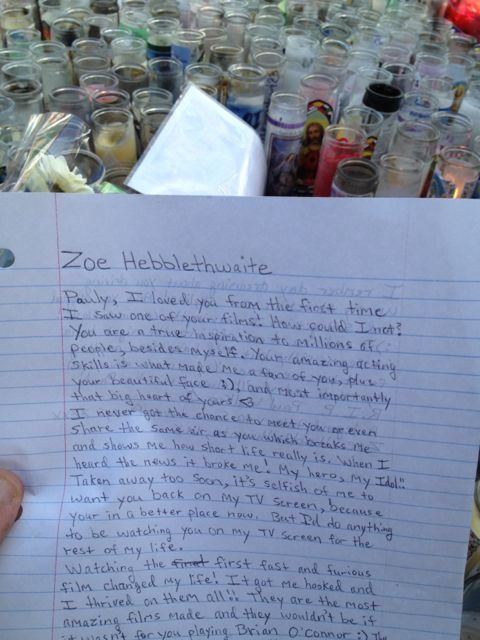 Zoe Hebblethwaite
Pauly, I loved you from the first time
I saw one of your films! How could I not?
You are a true inspiration to millions of
people, besides myself. Your amazing acting
skills is what made me a fan of yours, plus
your beautiful face :), and most importantly
that big heart of yours <3
I never got the chance to meet you or even
share the same air as you which breaks me
and shows me how short life really is. When I
heard the news it broke me! My hero, My Idol!!
Taken away too soon, it's selfish of me to
want you back on my TV screen, because
your in a better place now. But I'd do anything
to be watching you on my TV screen for the
rest of my life.
Watching the first fast and furious
film changed my life! It got me hooked and
I thrived on them all!! They are the most
amazing films made and they wouldn't be if
it wasn't for you playing Brian O'Connor :) The